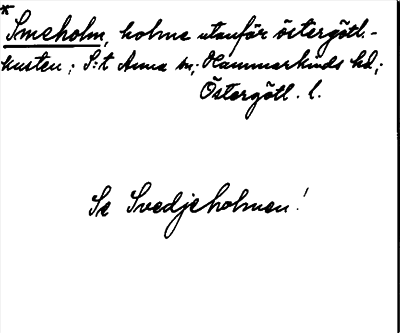 * Smeholm, holme utanför östergötl.-
kusten; S:t Anna sn; Hammarkinds hd;
Östergötl. l.
Se Svedjeholmen!